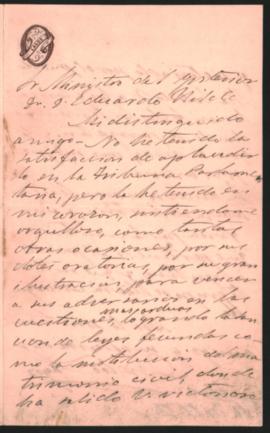 Sr Ministro del Interior
Dr. D. Eduardo Wilde
Mi distinguido
amigo - No he tenido la
satisfaccion de aplaudir
lo en la Tribuna Parlamen
taria, pero la he tenido en
mi corazon, sintiendome
orgulloso, como tantas
otras ocasiones, por sus
dotes oratorias, por su gran
ilustracion, para vencer
a sus adversarios en las
cuestiones mas arduas
logrando la sancion
de leyes fecundas co
mo la institucion del ma
trimonio civil, donde
ha salido V. victorioso